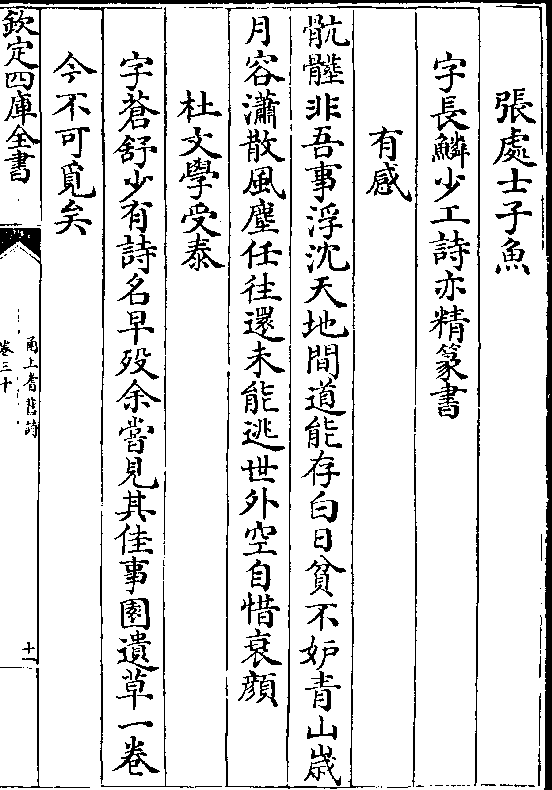 張處士子魚
字長鱗少工詩亦精篆書
有感
骯髒非吾事浮沈天地間道能存白日貧不妒青山歲
月容瀟散風塵任往還未能逃世外空自惜衰顔
杜文學受泰
字蒼舒少有詩名早殁余嘗見其佳事園遺草一卷
今不可覓矣
欽定四庫全書
甬上耆舊詩
卷三十
十一